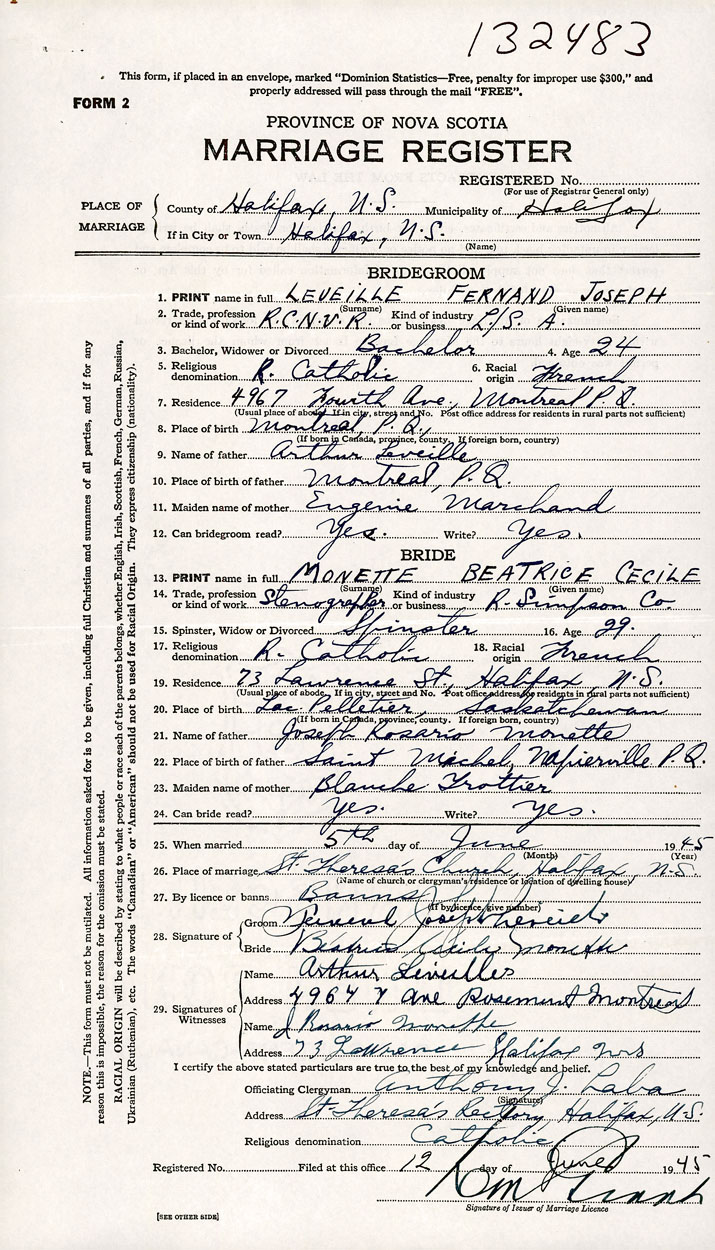 132483
This form, if placed in an envelope, marked "Dominion Statistics—Free, penalty for improper use $300," and
properly addressed will pass through the mail "FREE".
FORM 2
PROVINCE OF NOVA SCOTIA
MARRIAGE REGISTER
REGISTERED No.
(For use of Registrar General only)
PLACE OF MARRIAGE
County of Halifax, N.S. Municipality of Halifax
If in City or Town Halifax, N.S.
(Name)
BRIDEGROOM
1. PRINT name in full LEVEILLE FERNAND JOSEPH
(Surname) (Given name)
2. Trade, profession or kind of work R.C.N.V.R. Kind of industry or business L/S. A.
3. Bachelor, Widower or Divorced Bachelor 4. Age 24
5. Religious denomination R. Catholic 6. Racial origin French
7. Residence 4967 Fourth Ave., Montreal P.Q.
(Usual place of abode. If in city, street and No. Post office address for residents in rural parts not sufficient)
8. Place of birth Montreal, P.Q.,
(If born in Canada, province, county. If foreign born, country)
9. Name of father Arthur Leveille
10. Place of birth of father Montreal, P.Q.
11. Maiden name of mother Eugenie Marchand
12. Can bridegroom read? Yes. Write? Yes.
BRIDE
13. PRINT name in full MONETTE BEATRICE CECILE
(Surname) (Given name)
14. Trade, profession or kind of work Stenographer Kind of industry or business R. Simpson Co.
15. Spinster, Widow or Divorced Spinster 16. Age 29.
17. Religious denomination R. Catholic 18. Racial origin French
19. Residence 73 Lawrence St., Halifax N.S.
(Usual place of abode. If in city, street and No. Post office address for residents in rural parts not sufficient)
20. Place of birth Lac Pelletier, Saskatchewan
(If born in Canada, province, county. If foreign born, country)
21. Name of father Joseph Rosario Monette
22. Place of birth of father Saint Michel, Napierville P.Q.
23. Maiden name of mother Blanche Trottier
24. Can bride read? Yes. Write? Yes.
25. When married 5th day of June 1945
(Month) (Year)
26. Place of marriage St. Theresa's Church, Halifax, N.S.
(Name of church or clergyman's residence or location of dwelling house)
27. By licence or banns Banns
(If by licence, give number)
28. Signature of
Groom Joseph
Bride Beatrice Monette
29. Signatures of Witnesses
Name Arthur Leveille
Address 4967 4 Ave Rosemount Montreal
Name J Rosario Monette
Address 73 Lawrence Halifax N.S
I certify the above stated particulars are true to the best of my knowledge and belief.
Officiating Clergyman Anthony J. Laba
(Signature)
Address St. Theresa's Rectory Halifax, N.S.
Religious denomination Catholic
Registered No. Filed at this office 12 day of June 1945
Signature of Issuer of Marriage Licence
[SEE OTHER SIDE]
NOTE.—This form must not be mutilated. All information asked for is to be given, including full Christian and surnames of all parties, and if for any
reason this is impossible, the reason for the omission must be stated.
RACIAL ORIGIN will be described by stating to what people or race each of the parents belongs, whether English, Irish, Scottish, French, German, Russian,
Ukrainian (Ruthenian), etc. The words "Canadian" or "American" should not be used for Racial Origin. They express citizenship (nationality).